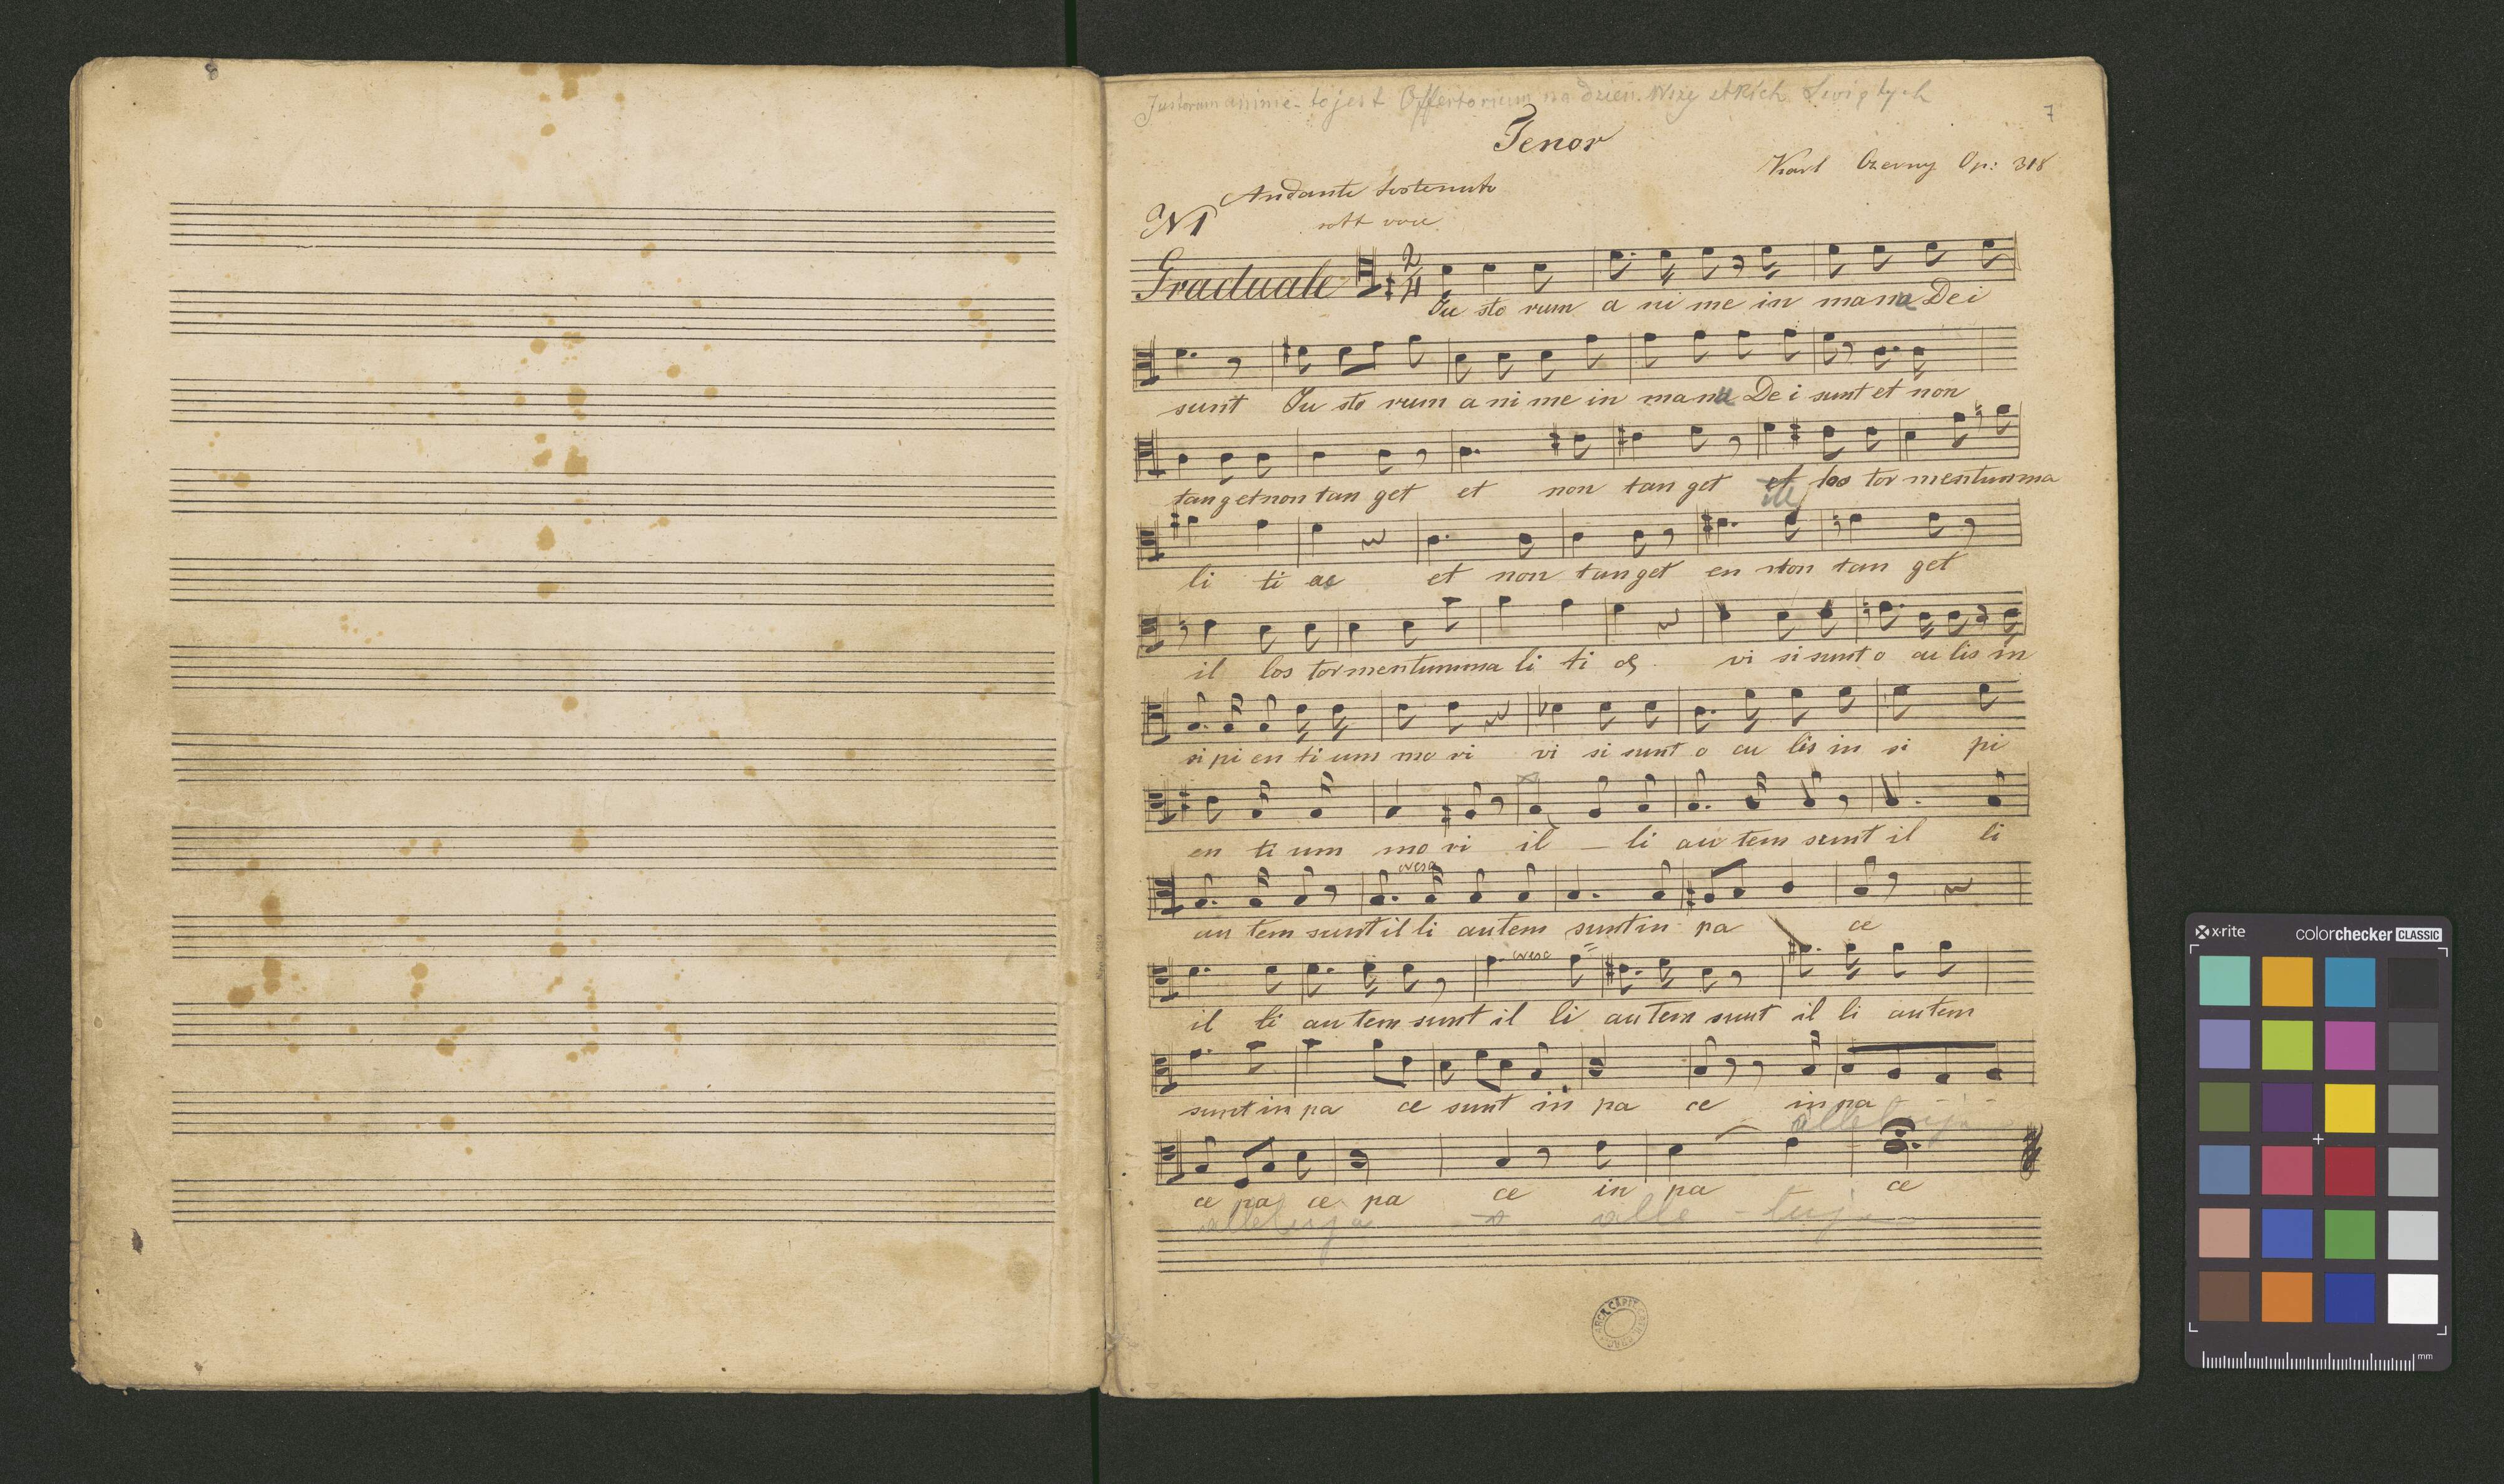 Justorum anime - to jest Offertorium na dzień Wszystkich Świętych
7
Tenor
Karl Czerny Op: 318
Andante sostenuto
N1
sott voce
Graduale
2/4
Ju sto rum a ni me in manu De i
sunt Ju sto rum a ni me in manu De i sunt et non
tan get non tan get et non tan get et los tor mentum ma
ille
li ti ae et non tan get en non tan get
il los tor mentum ma li ti ae vi si sunt o cu lis in
si pi en ti um mo ri vi si sunt o cu lis in si pi
en ti um mo ri il - li au tem sunt il li
cresc
au tem sunt il li autem sunt in pa ce
cresc
il li au tem sunt il li au tem sunt il li autem
sunt in pa ce sunt in pa ce in pa - - -
alleluja
ce pa ce pa ce in pa ce
alleluja alle - luja
x-rite colorchecker CLASSIC
mm